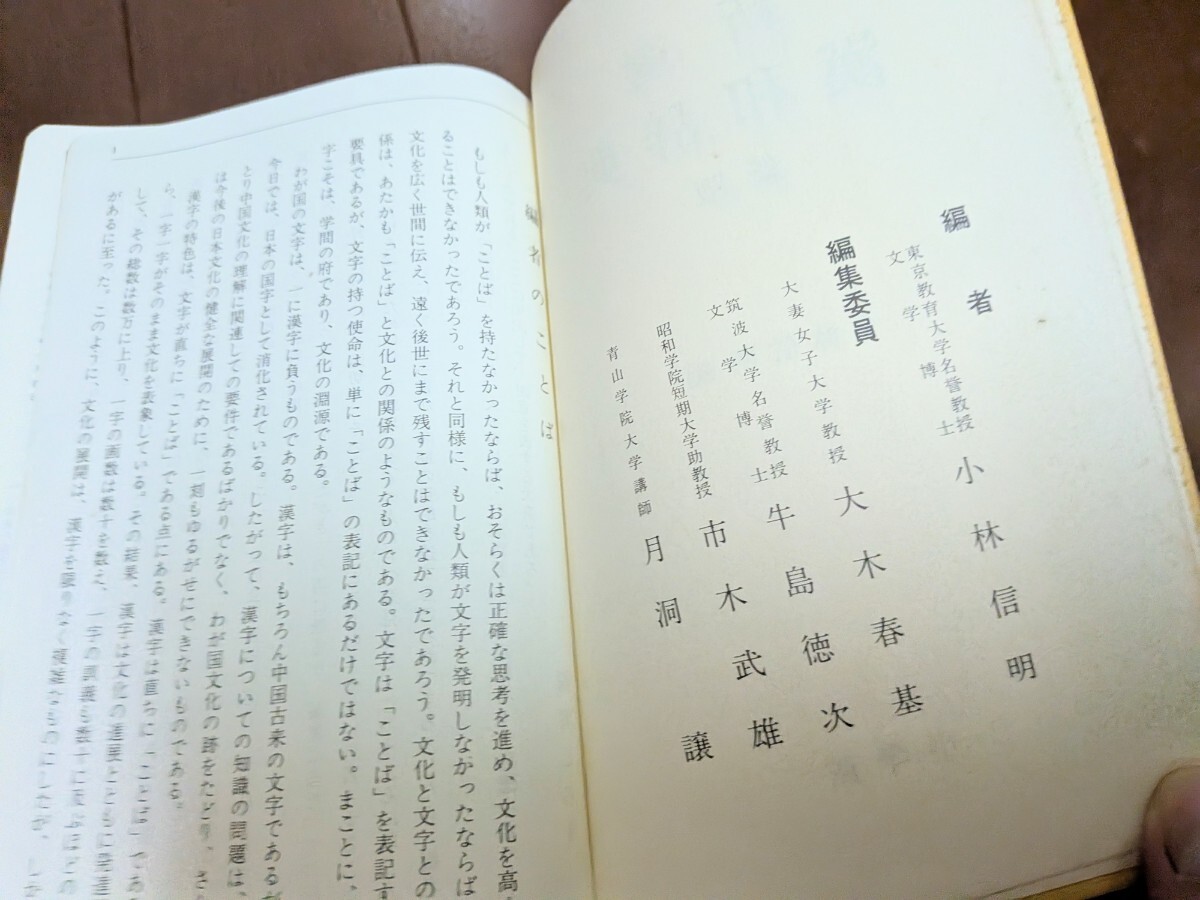 編者
東京教育大学名誉教授
文学博士
小林信明
編集委員
大妻女子大学教授
大木春基
筑波大学名誉教授
文学博士
牛島徳次
昭和学院短期大学助教授
市木武雄
青山学院大学講師
月洞譲
編者のことば
もしも人類が「ことば」を持たなかったならば、おそらくは正確な思考を進め、文化を高
ることはできなかったであろう。それと同様に、もしも人類が文字を発明しなかったならば
文化を広く世間に伝え、遠く後世にまで残すことはできなかったであろう。文化と文字との
係は、あたかも「ことば」と文化との関係のようなものである。文字は「ことば」を表記す
要具であるが、文字の持つ使命は、単に「ことば」の表記にあるだけではない。まことに、
字こそは、学問の府であり、文化の淵源である。
わが国の文字は、一に漢字に負うものである。漢字は、もちろん中国古来の文字であるが
今日では、日本の国字として消化されている。したがって、漢字についての知識の問題は、
とり中国文化の理解に関連しての要件であるばかりでなく、わが国文化の跡をたどり、さ
は今後の日本文化の健全な展開のために、一刻もゆるがせにできないものである。
漢字の特色は、文字が直ちに「ことば」である点にある。漢字は直ちに「ことば」であ
ら、一字一字がそのまま文化を表象している。その結果、漢字は文化の進展とともに発達
して、その総数は数万に上り、一字の画数は数十を数え、一字の訓義も数十に及ぶほどの
があるに至った。このように、文化の展開は、漢字を限りなく複雑なものにしたが、しか